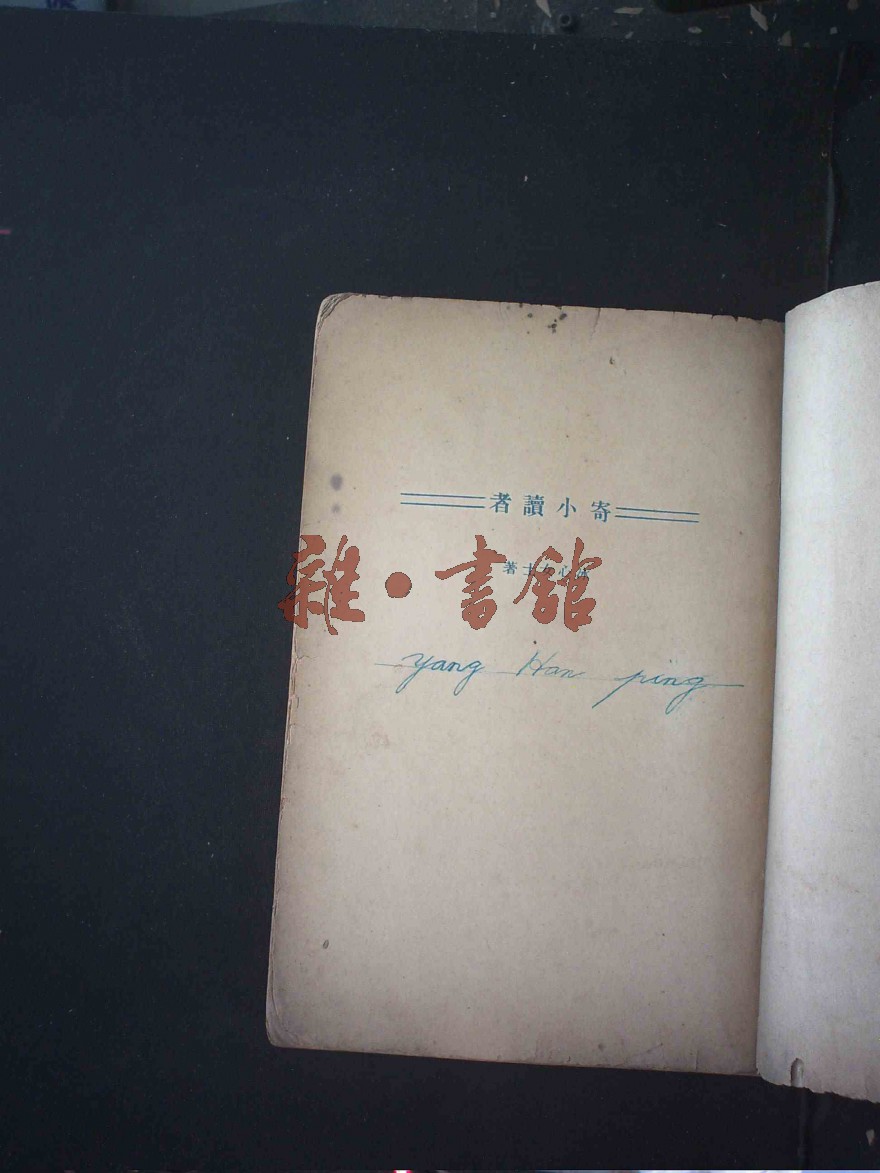 寄小讀者
冰心女士著
雜·書館
yang Han ping